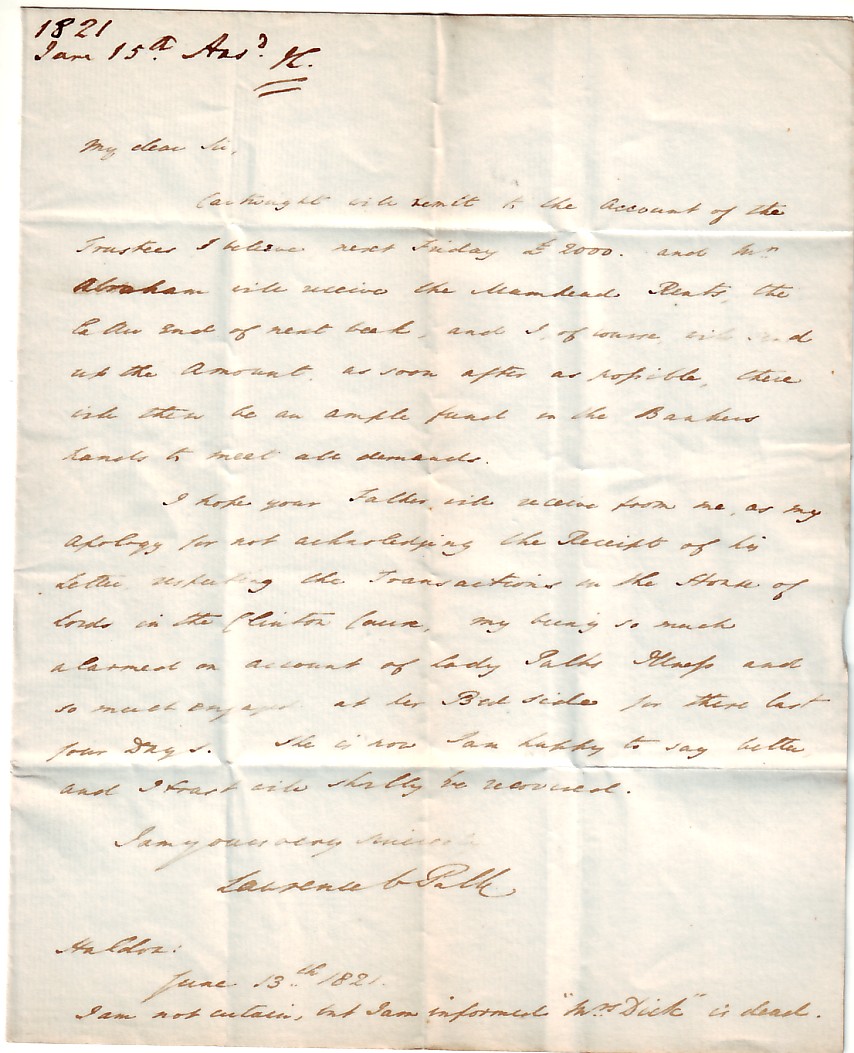 1821
June 15th Ansd. H.
My dear Sir,
Cartwright will remit to the Account of the
Trustees I believe next Friday £2000. and Mr
Abraham will receive the Mamhead Rents, the
latter End of next week, and I, of course, will send
up the Amount. as soon after as possible, there
will then be an ample fund in the Bankers
hands to meet all demands.
I hope your Father will receive from me, as my
apology for not acknowledging the Receipt of his
Letter respecting the Transactions in the House of
Lords in the Clinton Cause, my being so much
alarmed on account of Lady Palks Illness and
so much engaged at her Bed side for these last
four Days. She is now I am happy to say better
and I trust will shortly be recovered.
I am yours very sincerely
Lawrence Palk
Haldon:
June 13th 1821.
I am not certain, but I am informed "Mrs Dick" is dead.